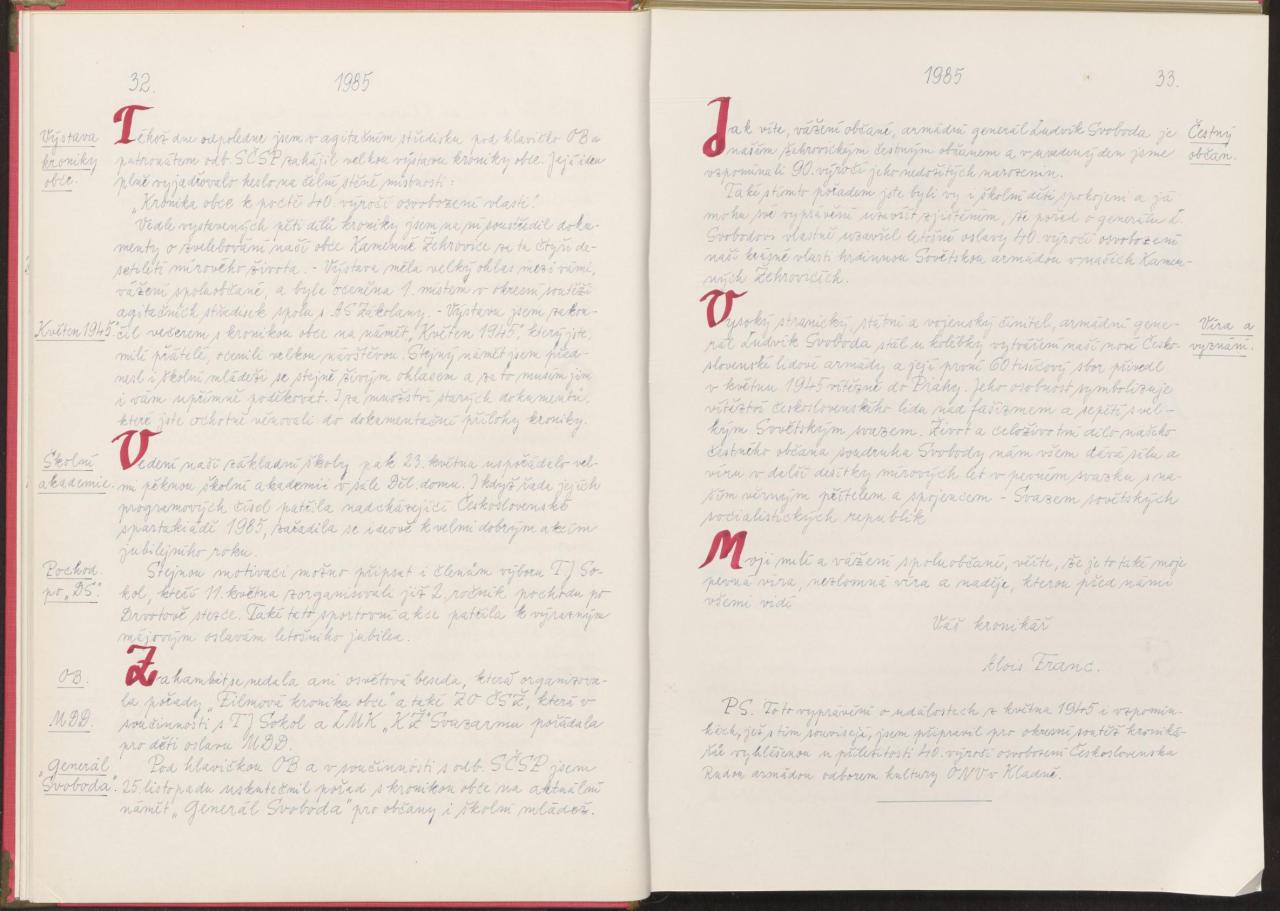 32.
1985
Výstava
kroniky
obce.
Téhož dne odpoledne jsem v agitačním středisku pod hlavičko OB a
patronátem odb. SČSP zahájil velkou výstavu kroniky obce. Její ideu
plně vyjadřovalo heslo na čelní stěně místnosti:
„Kronika obce k poctě 40 výročí osvobození vlasti".
Vedle vystavených pěti dílů kroniky jsem na ní soustředil doku-
menty o zvelebování naší obce Kamenné Žehrovice za ta čtyři de-
setiletí mírového života. - Výstava měla velký ohlas mezi vámi,
vážení spoluobčané, a byla oceněna 1. místem v okresní soutěži
agitačních středisek spolu s AS Zákolany. - Výstavu jsem zakon-
Květen 1945
čil večerem s kronikou obce na námět „Květen 1945", který jste,
milí přátelé, ocenili velkou návštěvou. Stejný námět jsem před-
nesl i školní mládeži se stejně živým ohlasem a za to musím jim
i vám upřímně poděkovat. I za množství starých dokumentů,
které jste ochotně věnovali do dokumentační přílohy kroniky.
Školní
akademie.
Vedení naší základní školy pak 23. května uspořádalo vel-
mi pěknou školní akademii v sále Děl. domu. I když řada jejích
programových čísel patřila nadcházející Československé
spartakiádě 1985, zařadila se ideově k velmi dobrým akcím
jubilejního roku.
Pochod
po „DS".
Stejnou motivaci možno připsat i členům výboru TJ So-
kol, kteří 11. května zorganisovali již 2. ročník pochodu po
Drvotově stezce. Také tato sportovní akce patřila k výrazným
májovým oslavám letošního jubilea.
OB.
Zahambit se nedala ani osvětová beseda, která organizova-
la pořady „Filmová kronika obce" a také ZO ČSŽ, která v
MDD.
součinnosti s TJ Sokol a LMK „KŽ" Svazarmu pořádala
pro děti oslavu MDD.
„Generál
Svoboda".
Pod hlavičkou OB a v součinnosti s odb. SČSP jsem
25. listopadu uskutečnil pořad s kronikou obce na aktuální
námět „Generál Svoboda" pro občany i školní mládež.
1985
33.
Čestný
občan.
Jak víte, vážení občané, armádní generál Ludvík Svoboda je
naším žehrovickým čestným občanem a v uvedený den jsme
vzpomínali 90. výročí jeho nedožitých narozenin.
Také s tímto pořadem jste byli vy i školní děti spokojeni a já
mohu své vyprávění uzavřít zjištěním, že pořad o generálu L.
Svobodovi vlastně uzavřel letošní oslavy 40. výročí osvobození
naší krásné vlasti hrdinnou Sovětskou armádou v našich Kamen-
ných Žehrovicích.
Víra a
vyznání.
Vysoký stranický, státní a vojenský činitel, armádní gene-
rál Ludvík Svoboda stál u kolébky vytváření naší nové Česko-
slovenské lidové armády a její první 60 tisícový sbor přivedl
v květnu 1945 vítězně do Prahy. Jeho osobnost symbolizuje
vítězství československého lidu nad fašizmem a sepětí s vel-
kým Sovětským svazem. Život a celoživotní dílo našeho
čestného občana soudruha Svobody nám všem dává sílu a
víru v další desítky mírových let v pevném svazku s na-
ším věrným přítelem a spojencem - Svazem sovětských
socialistických republik
Moji milí a vážení spoluobčané, věřte, že je to také moje
pevná víra, nezlomná víra a naděje, kterou před námi
všemi vidí
Váš kronikář
Alois Franc.
PS. Toto vyprávění o událostech z května 1945 i vzpomín-
kách, jež s tím souvisejí, jsem připravil pro okresní soutěž kroniká-
řů vyhlášenou u příležitosti 40. výročí osvobození Československa
Rudou armádou odborem kultury ONV v Kladně.